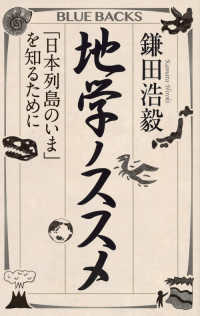 BLUE BACKS
鎌田浩毅
地学ノススメ
「日本列島のいま」
を知るために